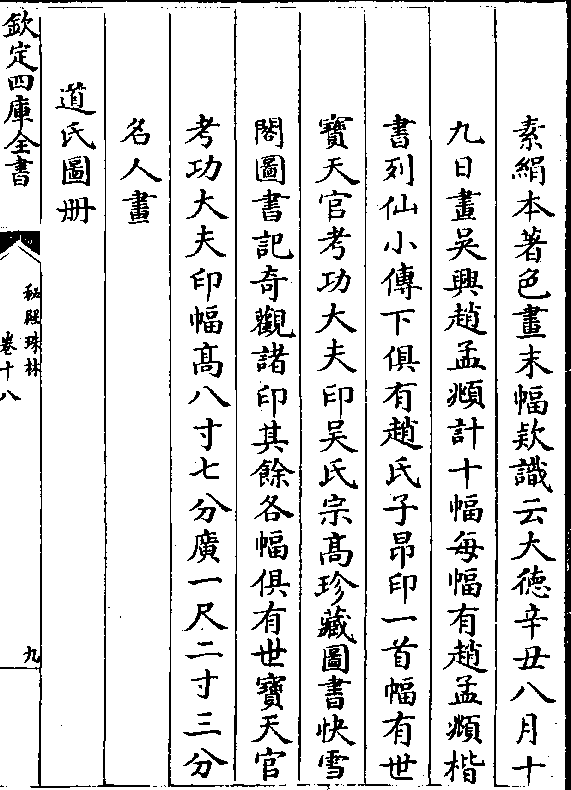 素絹本著色畫末幅欵識云大德辛丑八月十
九日畫吳興趙孟頫計十幅每幅有趙孟頫楷
書列仙小傳下俱有趙氏子昂印一首幅有世
寶天官考功大夫印吳氏宗髙珍藏圖書快雪
閣圖書記奇觀諸印其餘各幅俱有世寶天官
考功大夫印幅髙八寸七分廣一尺二寸三分
名人畫
道氏圖册
欽定四庫全書
秘殿珠林
卷十八
九